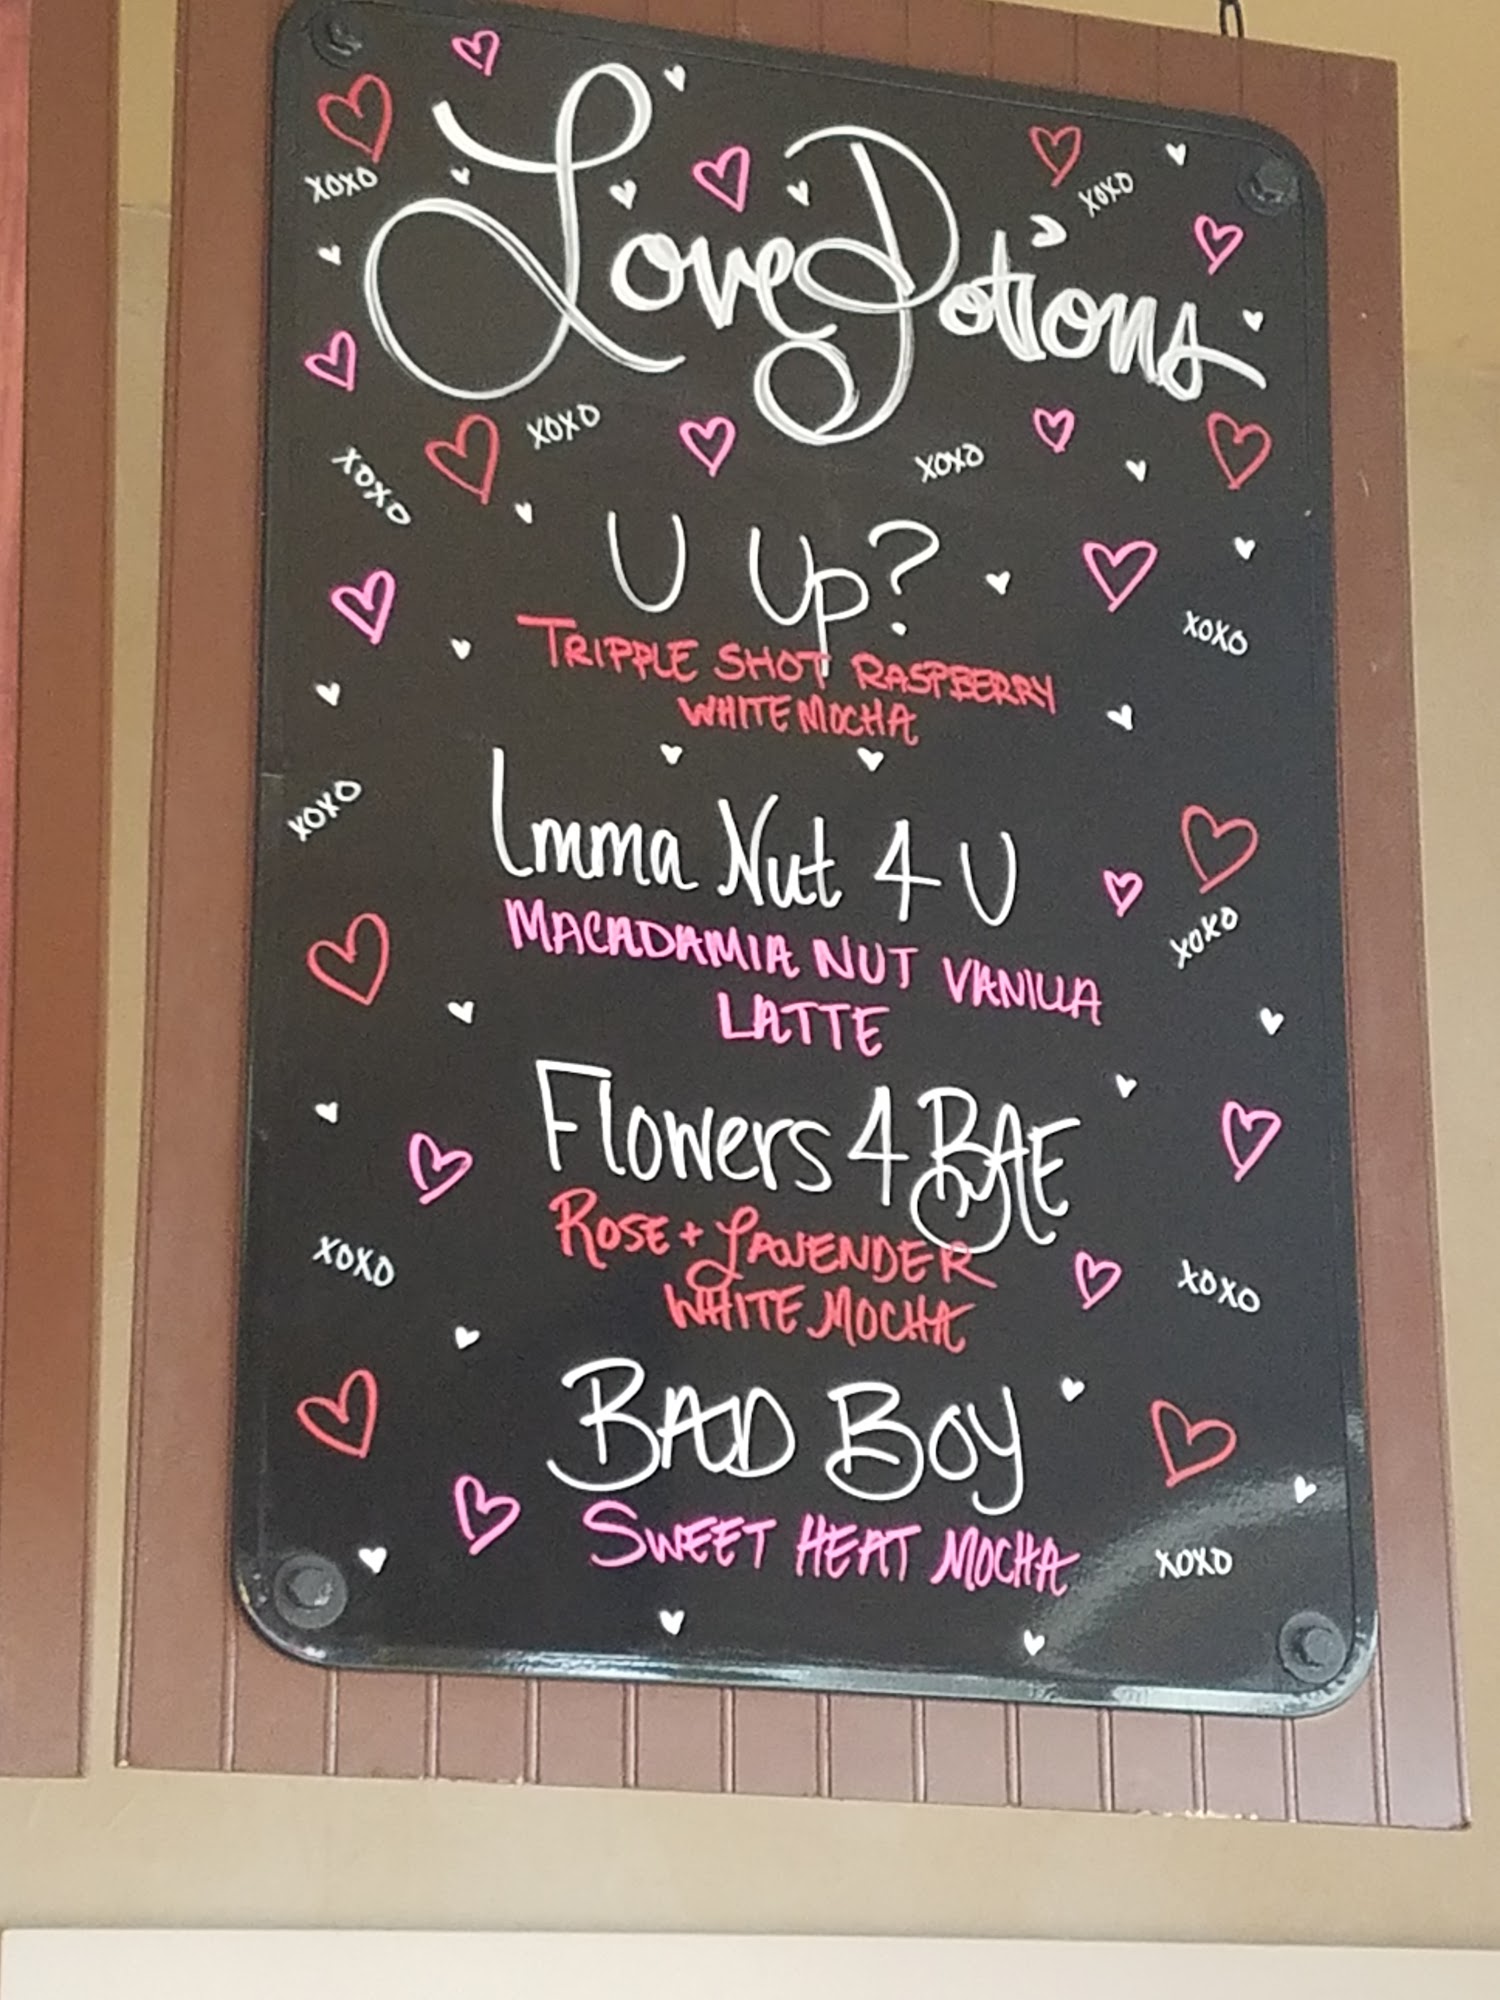 xoxo
xoxo
Love Potions
xoxo
xoxo
xoxo
U Up?
xoxo
TRIPPLE SHOT RASPBERRY
WHITE MOCHA
xoxo
Imma Nut 4 U
xoxo
MACADAMIA NUT VANILLA
LATTE
Flowers 4 BAE
ROSE + LAVENDER
xoxo
xoxo
WHITE MOCHA
BAD BOY
SWEET HEAT MOCHA
xoxo